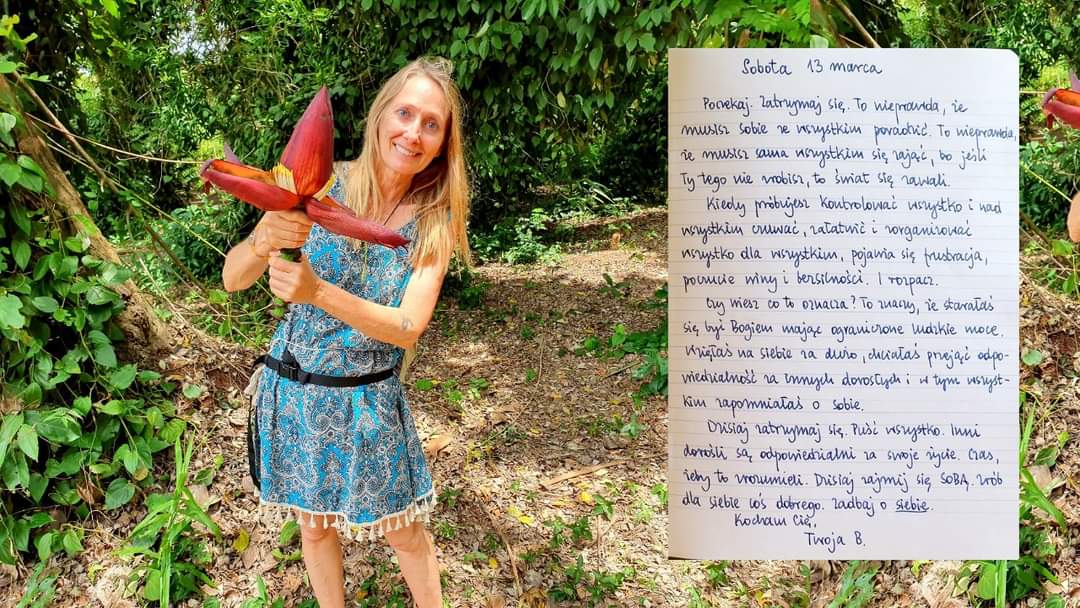 Sobota 13 marca
Poczekaj. Zatrzymaj się. To nieprawda, że
musisz sobie ze wszystkim poradzić. To nieprawda,
że musisz sama wszystkim się zająć, bo jeśli
Ty tego nie zrobisz, to świat się zawali.
Kiedy próbujesz kontrolować wszystko i nad
wszystkim czuwać, załatwić i zorganizować
wszystko dla wszystkim, pojawia się frustracja,
poczucie winy i bezsilności. I rozpacz.
Czy wiesz co to oznacza? To znaczy, że starałaś
się być Bogiem mając ograniczone ludzkie moce.
Wzięłaś na siebie za dużo, chciałaś przejąć odpo-
wiedzialność za innych dorosłych i w tym wszyst-
kim zapomniałaś o sobie.
Dzisiaj zatrzymaj się. Puść wszystko. Inni
dorośli są odpowiedzialni za swoje życie. Czas,
żeby to zrozumieli. Dzisiaj zajmij się SOBĄ. Zrób
dla siebie coś dobrego. Zadbaj o siebie.
Kocham Cię,
Twoja B.